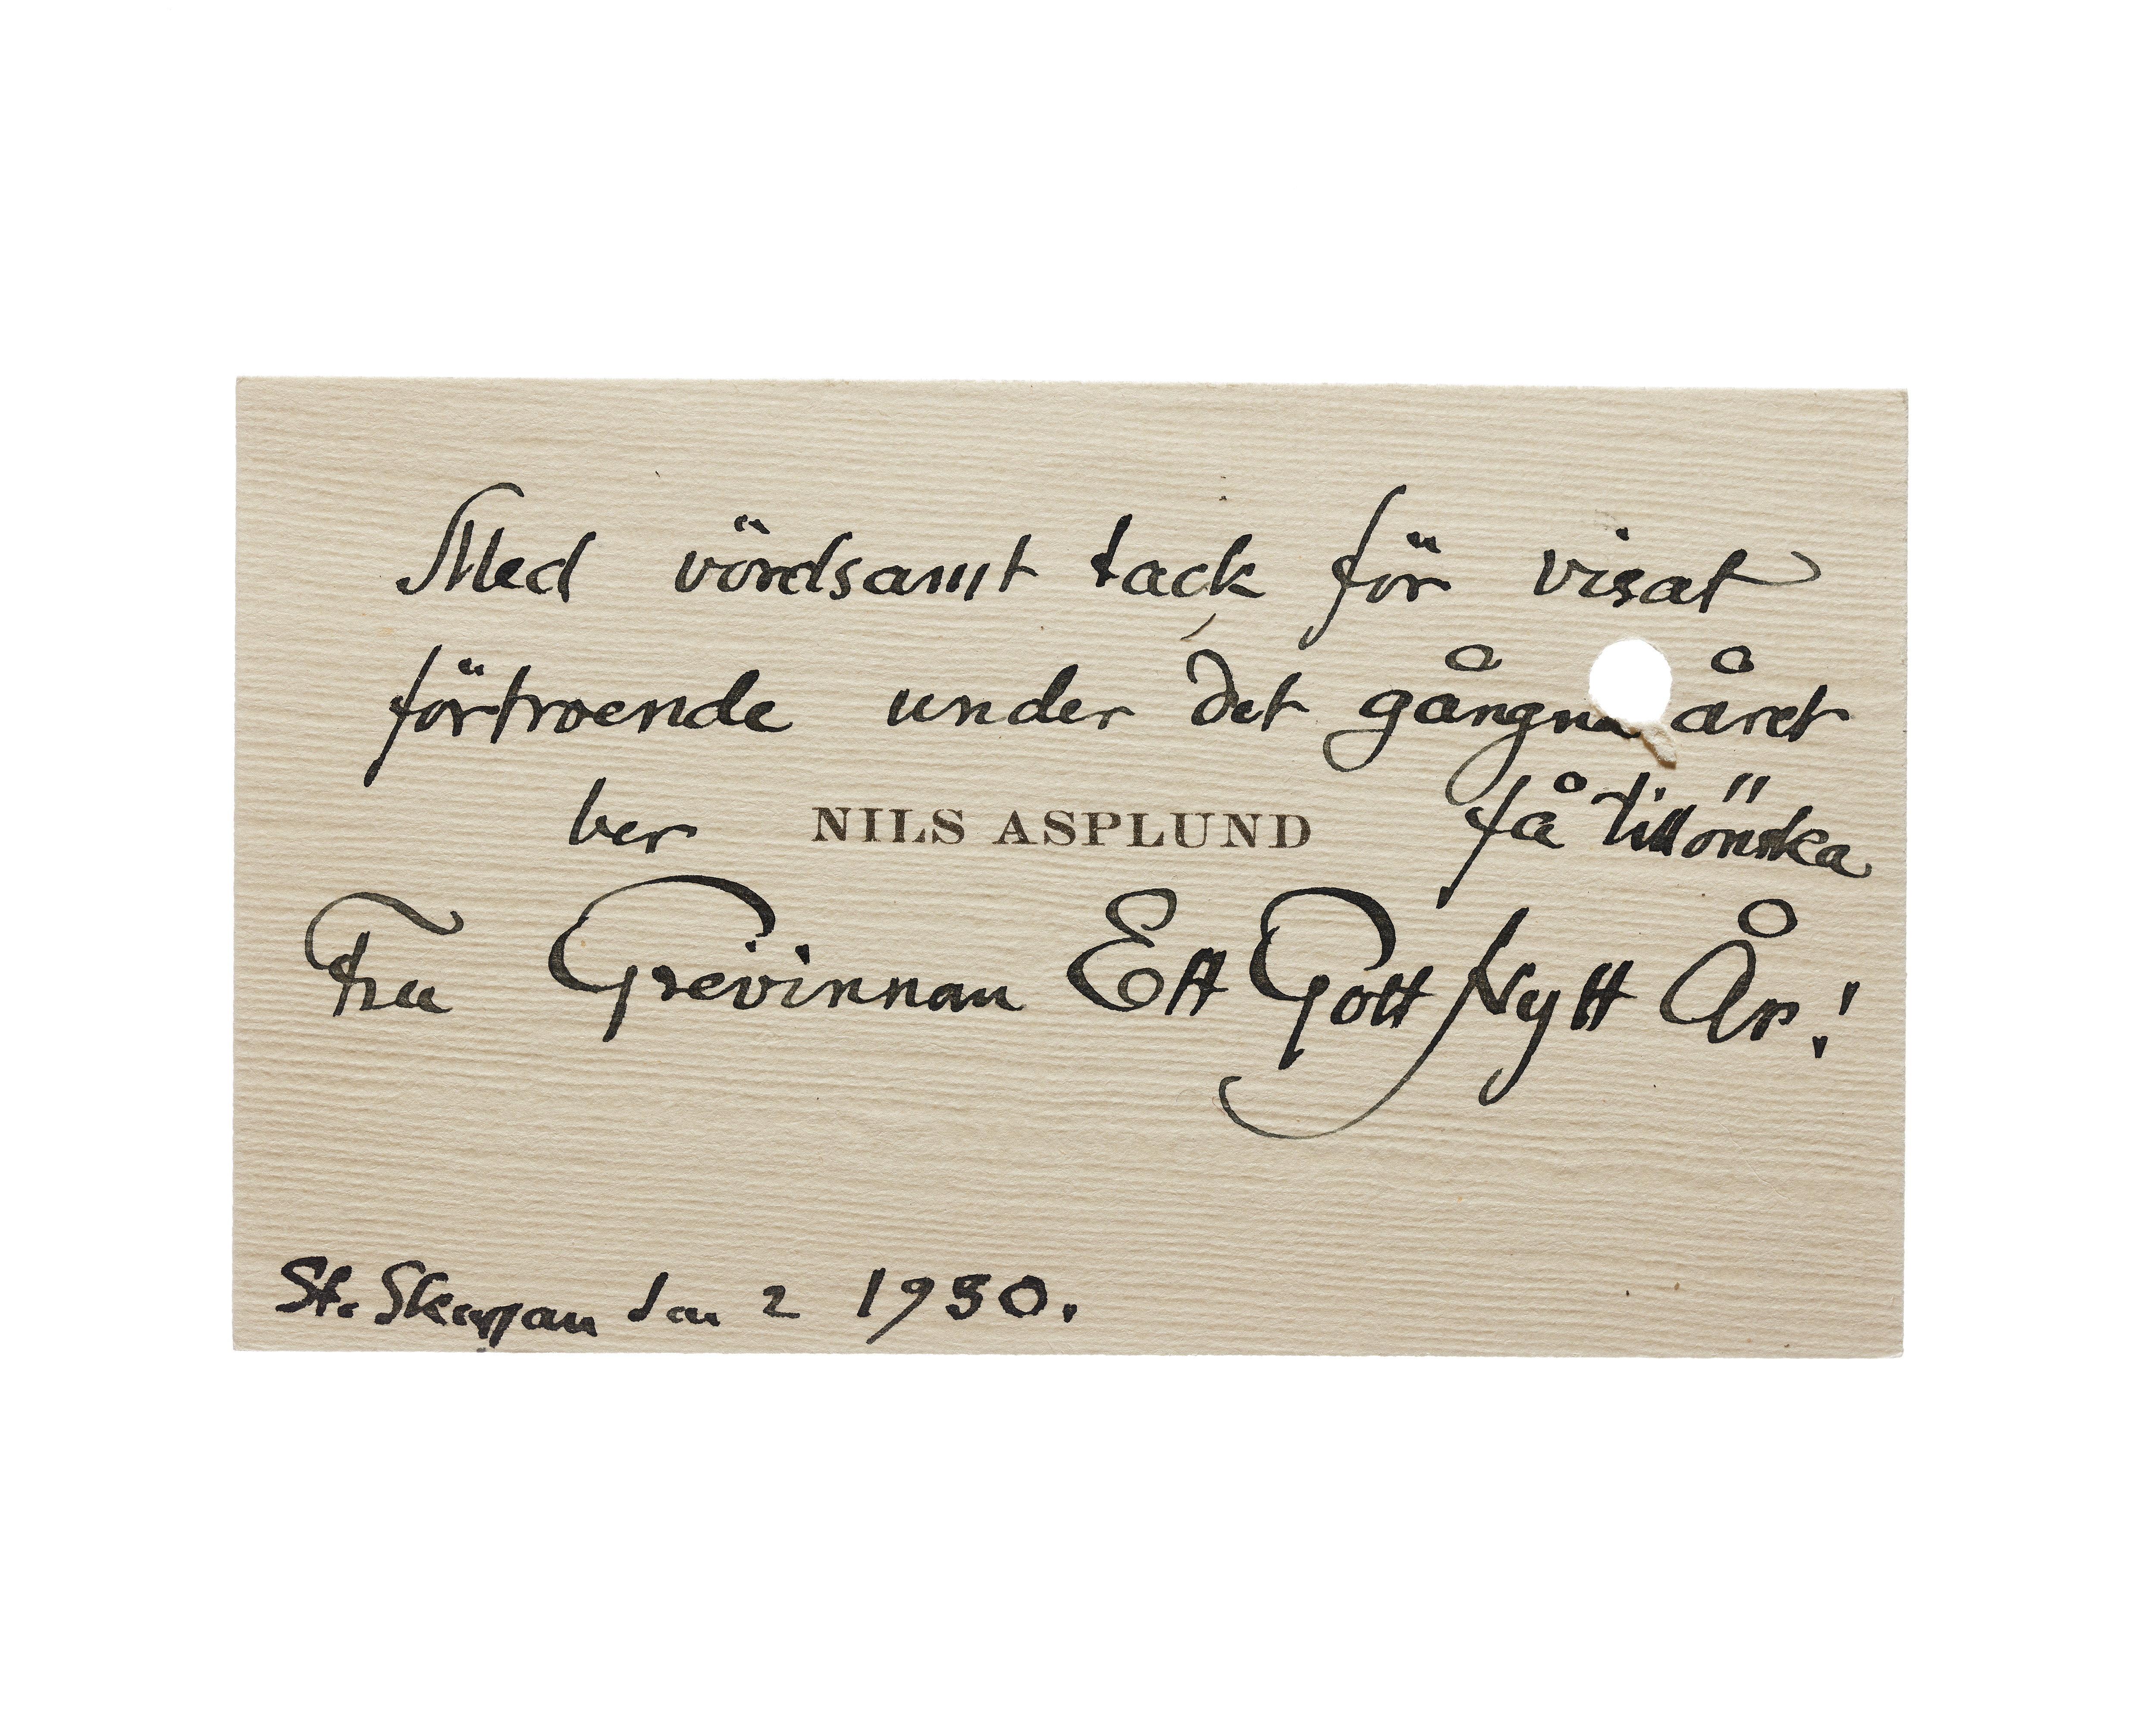 Med vördsamt tack för visat
förtroende under det gångna året
ber NILS ASPLUND få tillönska
Fru Grevinnan Ett Gott Nytt År!
St. Skuggan den 2 1930.